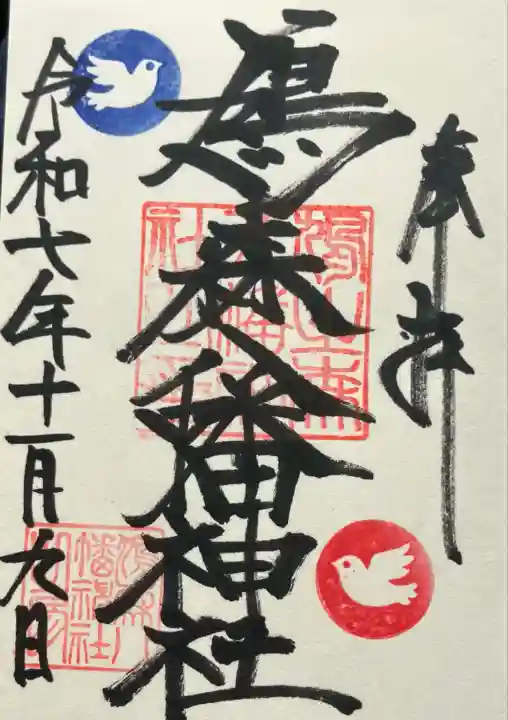 奉拝
鳩森八幡神社
令和七年十一月九日